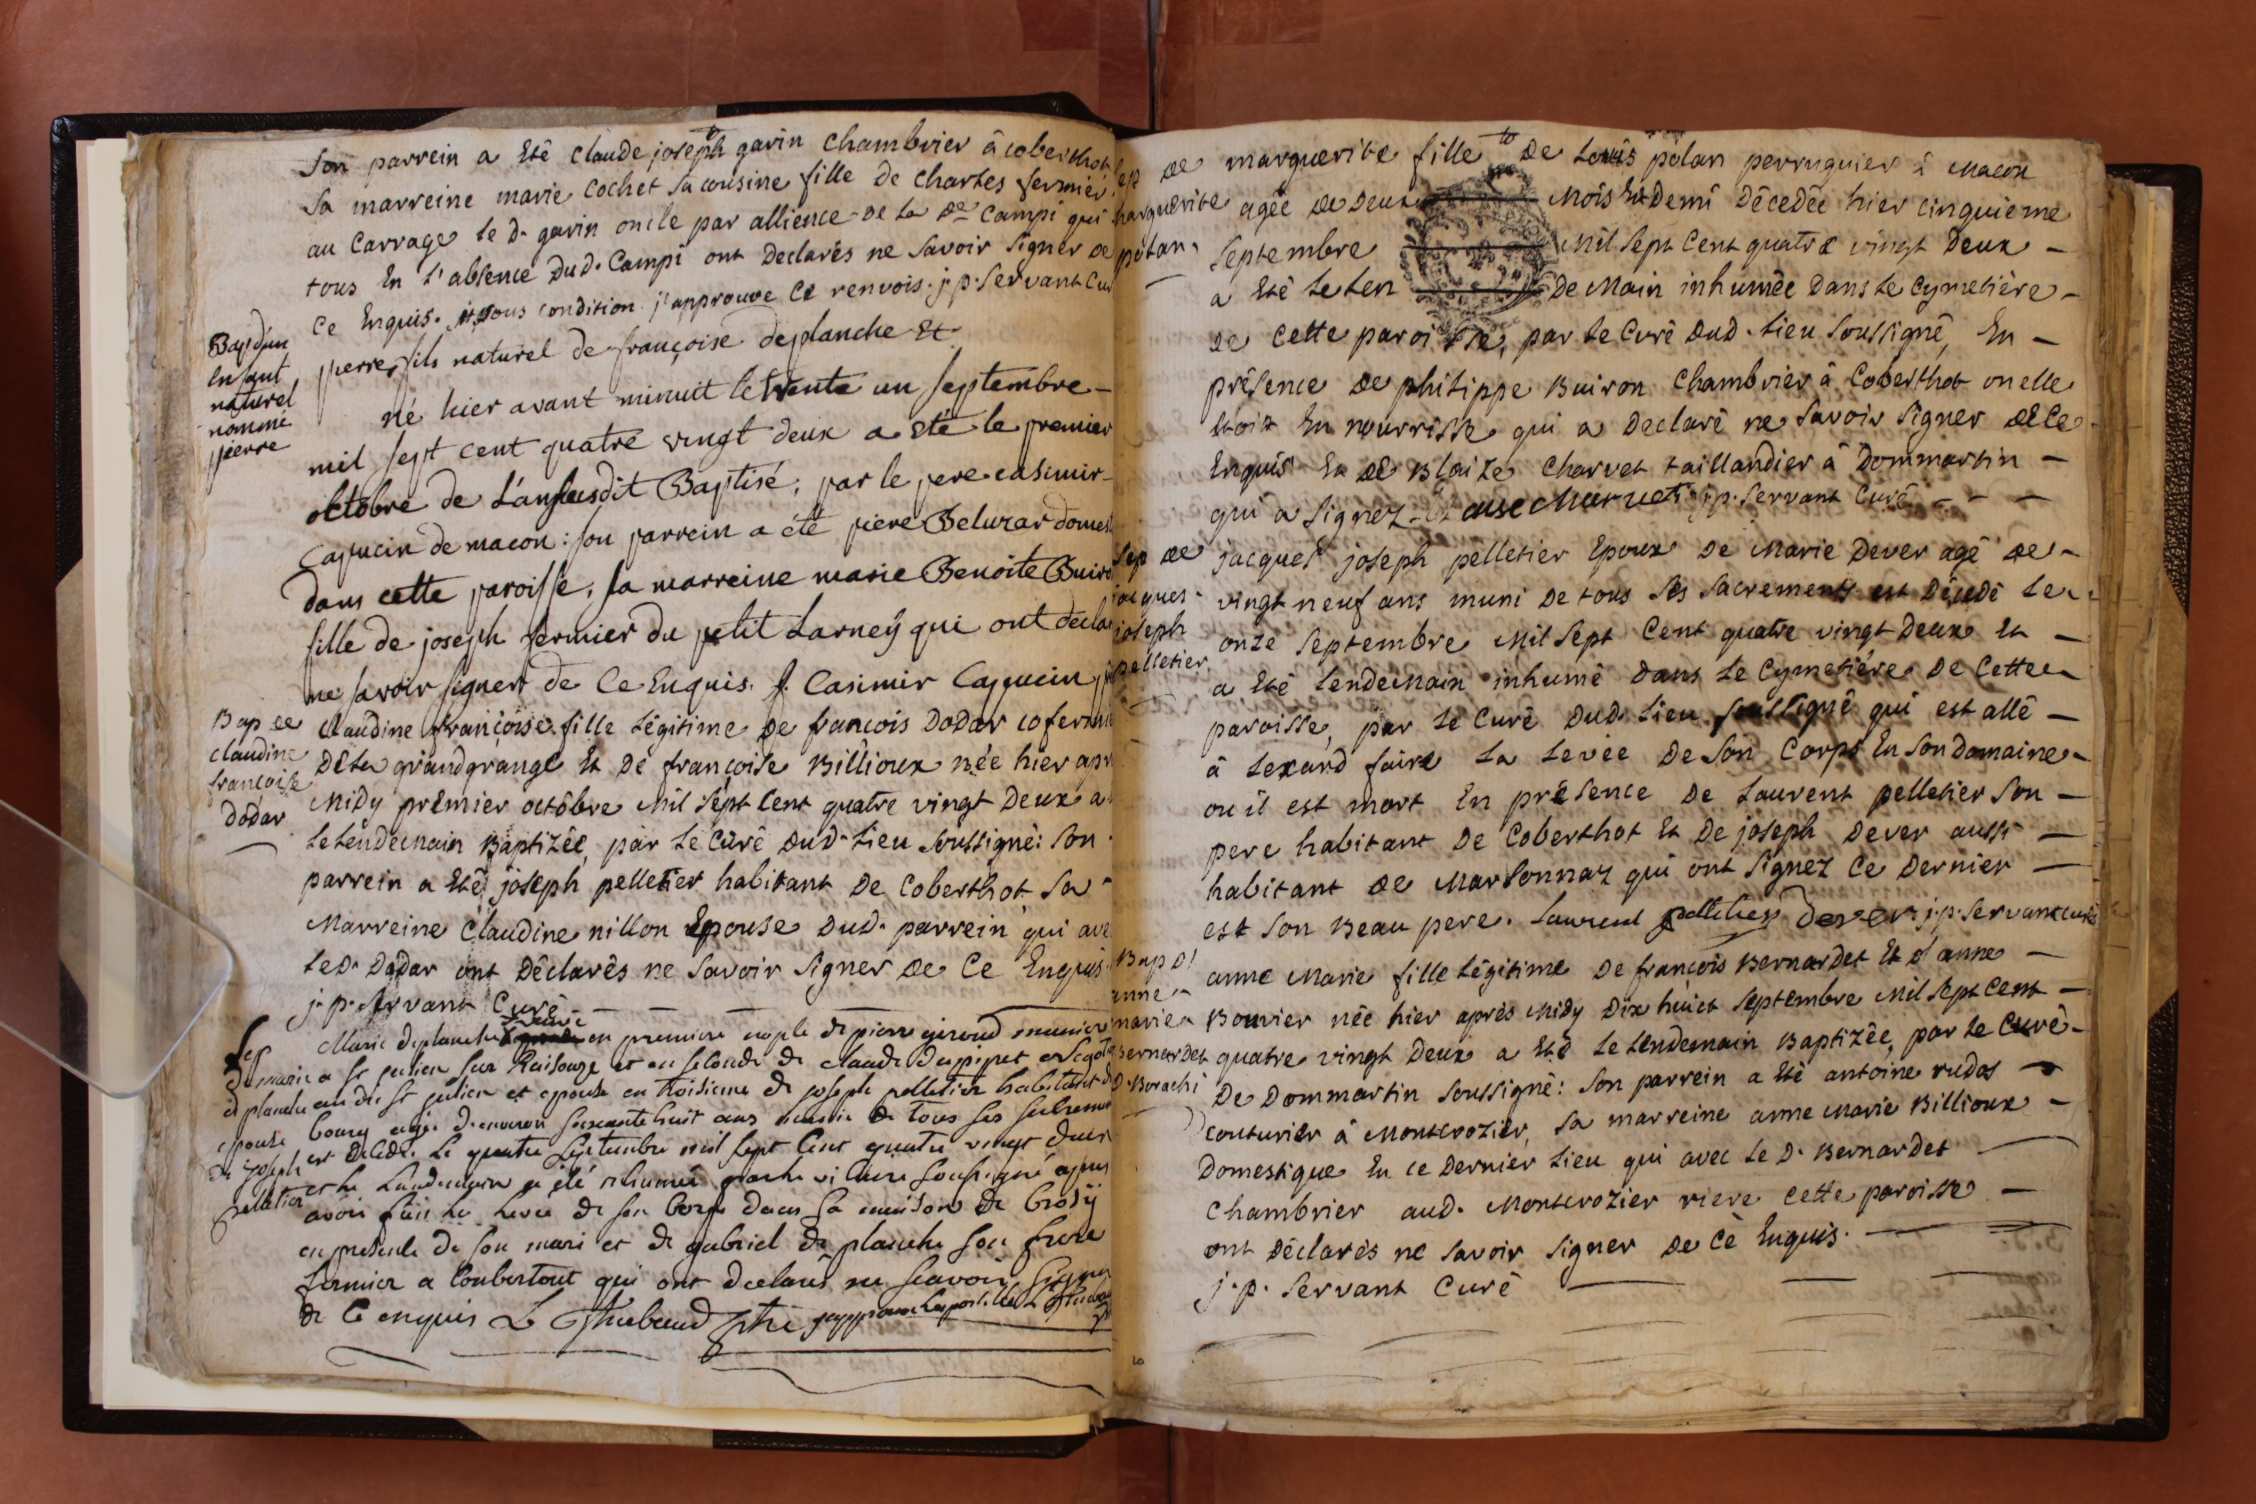 Son parrein a Etê claude joseph garin chambrier â coberthot
Sa marreine marie cochet sa cousine fille de charles fermier
au Carrage le d. garin oncle par allience de la de Campi qui
tous En l'absence Dud. Campi ont Declarés ne Savoir Signer De
Ce Enquis. sous condition j'approuve Ce renvois. j. p. Servant Cu
Bap d'un
Enfant
naturel
nommé
pierre
pierre, fils naturel de françoise deplanche Et
né hier avant minuit le trente un septembre -
mil sept cent quatre vingt deux a eté le premier
octobre de L'an susdit Baptisé, par le pere casimir -
Capucin de macon : son parrein a été piere Beluzar domes
dans cette paroisse, sa marreine marie Benoite Buiro
fille de joseph fermier du petit Larney qui ont decla
ne savoir signer de Ce Enquis. f. Casimir Capucin
Bap de
claudine
francoise
dodar
Claudine françoise fille légitime de francois Dodar cofermi
De la grandgrange Et De françoise Billioux née hier apr
Midy prémier octôbre Mil Sept Cent quatre vingt Deux a
le lendemain Baptizêe, par le Curé Dud. lieu Soussigné : Son
parrein a Etê joseph pelletier habitant De Coberthot Sa
Marreine Claudine nillon Epouse Dud. parrein qui ave
le D. Dodar ont Dêclarês ne Savoir Signer de Ce Enquis
j. p. Servant Curê
Sep
de marie
deplanche
epouse
de joseph
pelletier
veuve
Marie deplanche en premiere nople de pierre giroud munier
a st julien sur Raisouze et en seconde de claude dupipet
au dit st julien et epouse en troisieme de joseph pelletier habitant de
bourg agée d'environ soixante huit ans munie de tous ses sacremen
est decedée le quatre septembre mil sept cent quatre vingt deux
et le Landemain a été inhumée par le vicaire soussigné apres
avoir fait la levée de son corps dans sa maison de brosÿ
en presence de son mari et de gabriel de planche son frere
fermier a Coubertout qui ont declarés ne scavoir signer
de Ce enquis L Thiebaud ptre j'approuve
Sep de
marguerite
polan
marguerite fille de Louis polan perruquier â Macon
agée de Deux Mois Et Demi Décedée hier cinquieme
Septembre Mil Sept Cent quatre vingt Deux -
a Etê le len De Main inhumée Dans le Cymetière -
de cette paroisse, par le Curé Dud. lieu Soussigné, En -
présence de philippe Buiron Chambrier â Coberthot ou elle
Etoit En nourrisse qui a Declaré ne Savoir Signer de Ce
Enquis Et de Blaize Charvet taillandier â Dommartin -
qui a Signez - charvet j. p. Servant Curé - - -
Sep de
jacques
joseph
pelletier
jacques joseph pelletier Epoux De Marie Dever agé de -
vingt neuf ans muni De tous Ses Sacrements est Décedé le
onze Septembre Mil Sept Cent quatre vingt Deux Et -
a Etê lendemain inhumé Dans le Cymetière De Cette
paroisse, par le Curé Dud. lieu Soussigné qui est allé -
â Lexard faire la levée De Son Corps En Son Domaine -
ou il est mort En présence De Laurent pelletier Son -
pere habitant De Coberthot Et De joseph Dever aussi -
habitant de Marsonnaz qui ont Signez Ce Dernier -
est Son Beau pere. laurent pelletier Dever j. p. Servant curé
Bap d'
anne
marie
Bernardet
D. Borachi
anne Marie fille légitime De françois Bernardet Et d'anne -
Bouvier née hier aprés Midy Dix huict Septembre Mil Sept Cent -
quatre vingt Deux a Etê le lendemain Baptizêe, par le Curé -
De Dommartin Soussigné : Son parrein a Etê antoine rudos -
couturier â Montcrozier, Sa marreine anne Marie Billioux -
Domestique En ce Dernier lieu qui avec le D. Bernardet
Chambrier aud. Montcrozier riere Cette paroisse -
ont Déclarés ne Savoir Signer De Cè Enquis.
j. p. Servant Curê